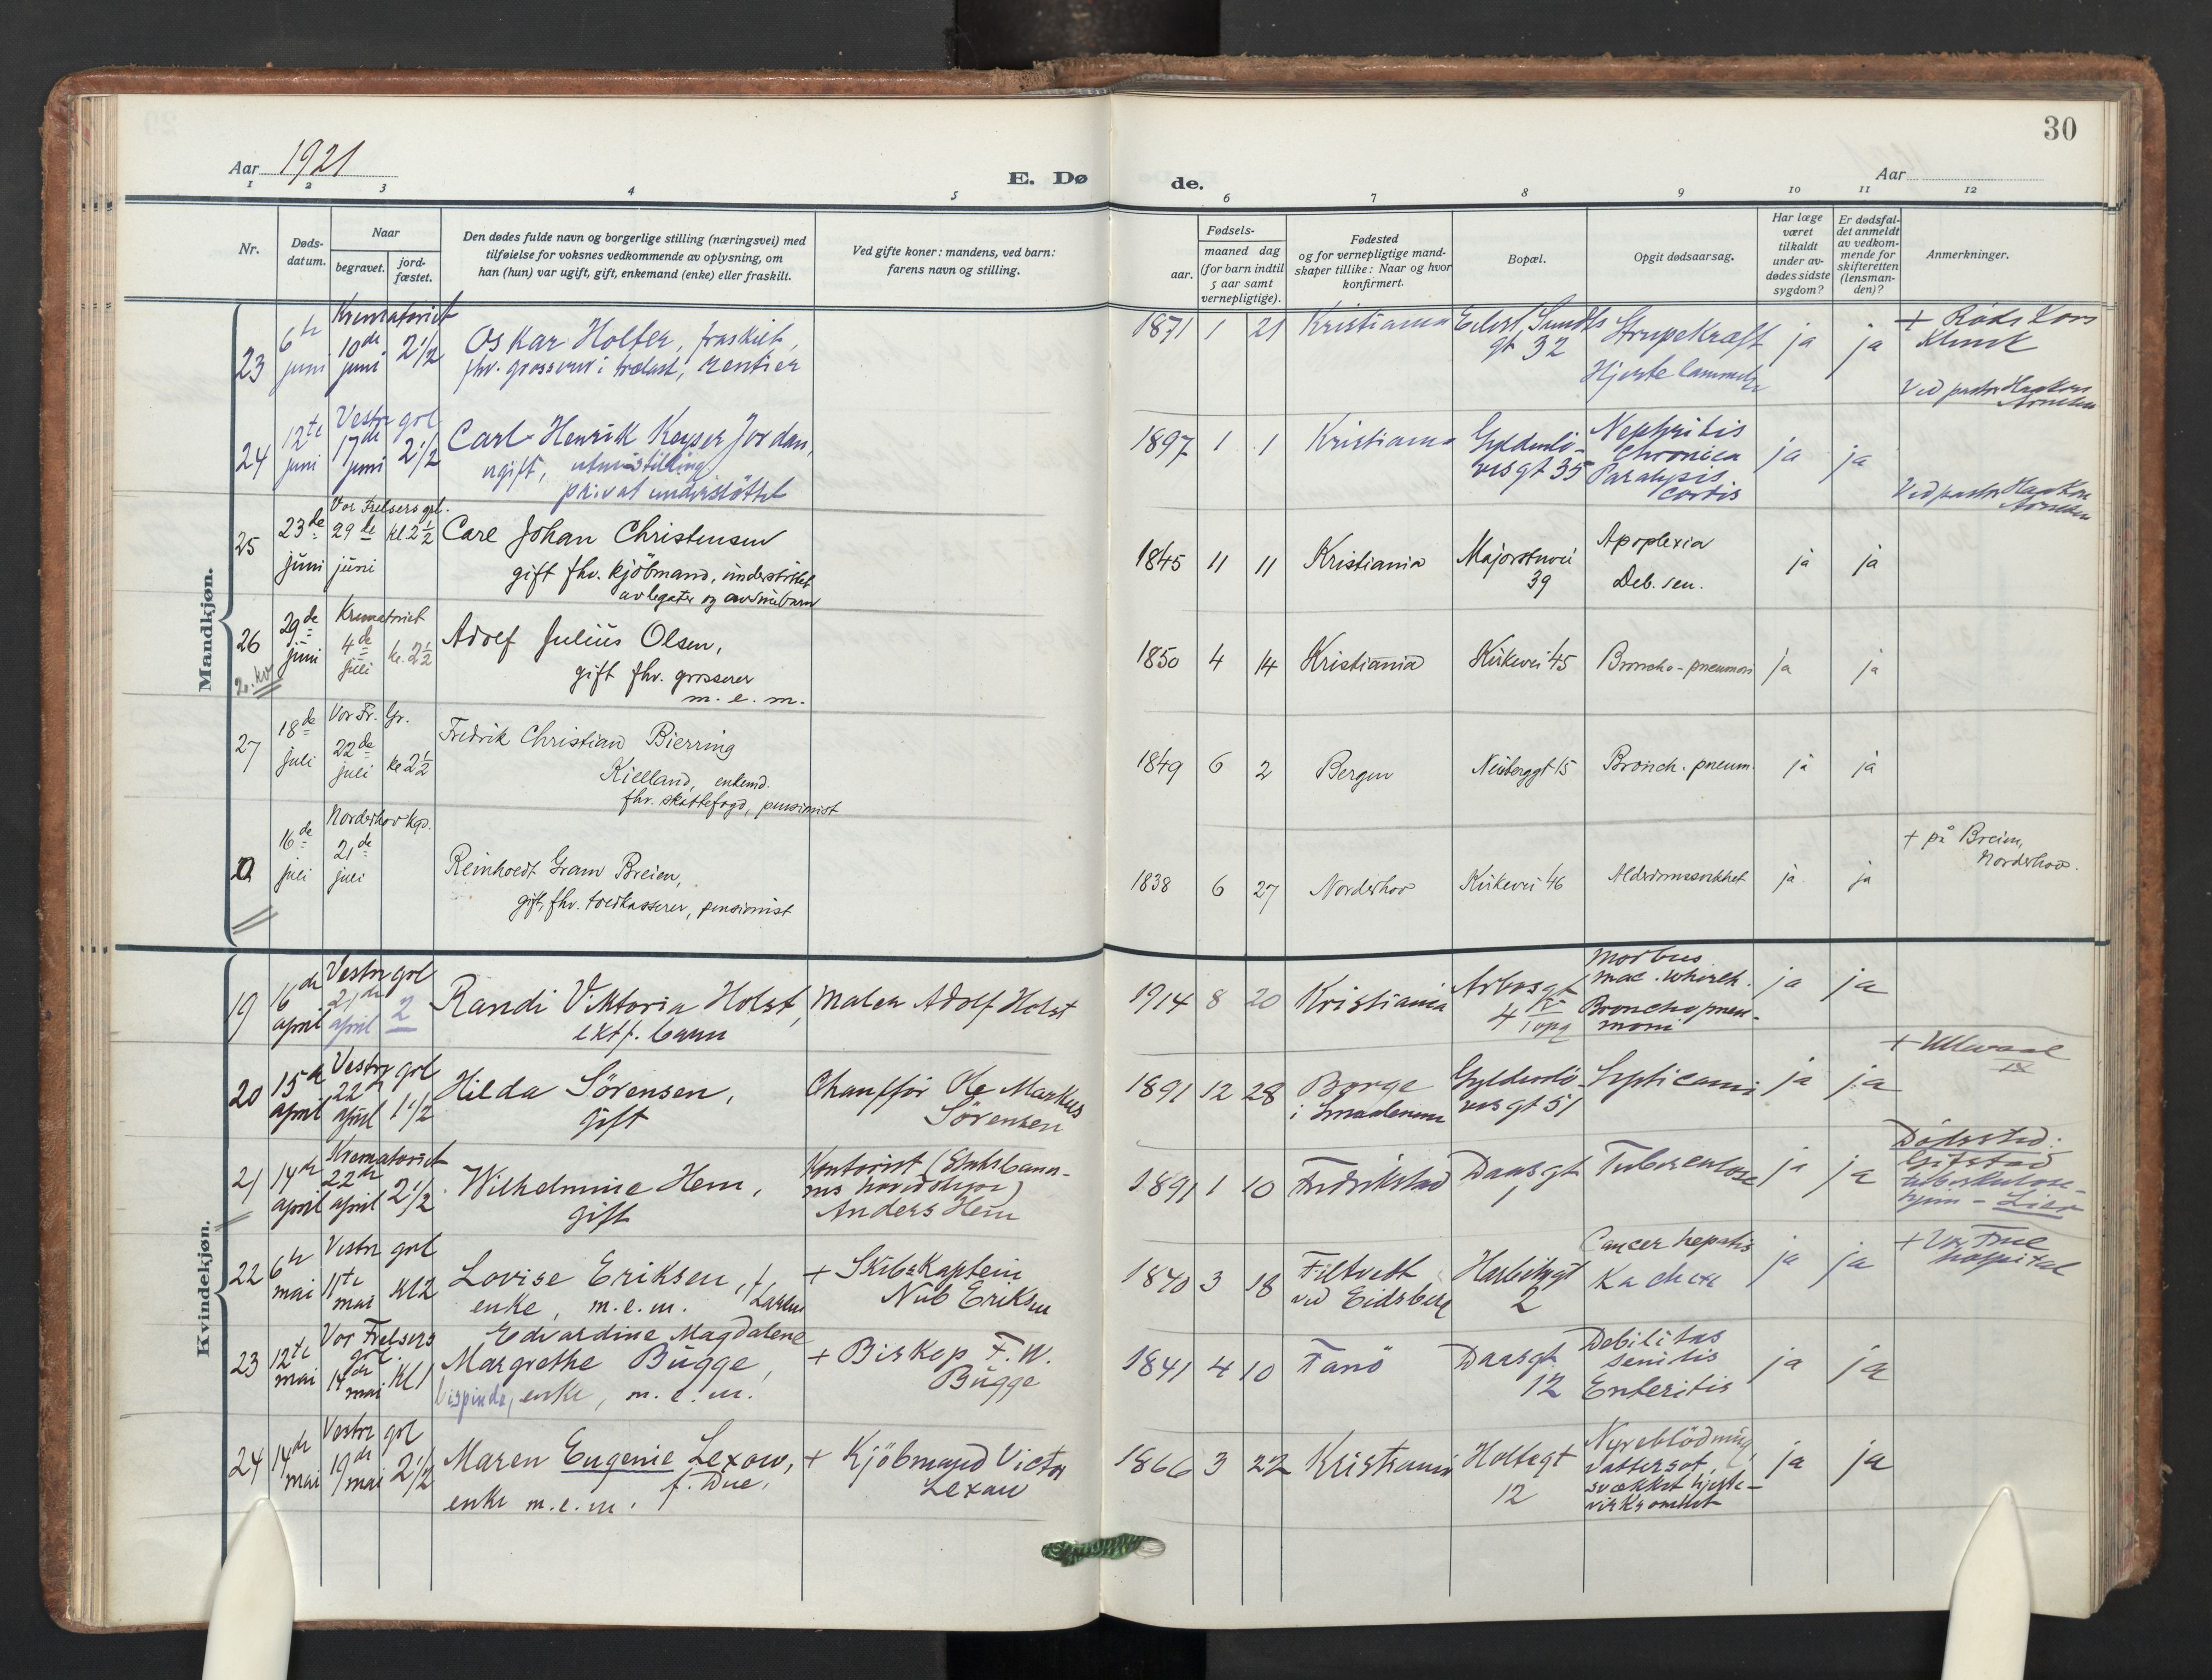 30
Aar 1921
E. Dø
de.
Aar
1 2 3 4 5 6 7 8 9 10 11 12
Nr.
Døds-
datum.
Naar
begravet.
jord-
fæstet.
Den dødes fulde navn og borgerlige stilling (næringsvei) med
tilføielse for voksnes vedkommende av oplysning, om
han (hun) var ugift, gift, enkemand (enke) eller fraskilt.
Ved gifte koner: mandens, ved barn:
farens navn og stilling.
Fødsels-
aar.
maaned dag
(for barn indtil
5 aar samt
vernepligtige).
Fødested
og for vernepligtige mand-
skaper tillike: Naar og hvor
konfirmert.
Bopæl.
Opgit dødsaarsag.
Har læge
været
tilkaldt
under av-
dødes sidste
sygdom?
Er dødsfal-
det anmeldt
av vedkom-
mende for
skifteretten
(lensman-
den)?
Anmerkninger.
Mandkjøn.
23
6te juni
Krematoriet
10de juni
2 1/2
Oskar Holter, fraskilt,
fhv. grosserer i trælast, rentier
1871 1 21
Kristiania
Eilert Sundts
gt 32
Strupekræft
Hjertelammelse
ja
ja
+ Røde Kors
Klinik
Ved pastor Haakon
Arnesen
24
12te juni
Vestre grl
17de juni
2 1/2
Carl Henrik Keyser Jordan,
ugift, uten stilling
privat understöttet
1897 1 1
Kristiania
Gyldenlö-
vesgt 35
Nephritis
Chronica
Paralysis
cordis
ja
ja
Ved pastor Haakon
Arnesen
25
23de juni
Vor Frelsers grl.
29de juni
kl 2 1/2
Carl Johan Christensen
gift fhv. kjöbmand, understöttet
av legater og av sine barn
1845 11 11
Kristiania
Majorstuvei
39
Apoplexia
Deb. sen.
ja
ja
26
29de juni
Krematoriet
4de juli
kl. 2 1/2
Adolf Julius Olsen,
gift fhv. grosserer
m. e. m.
1850 4 14
Kristiania
Kirkevei 45
Broncho-pneumoni
ja
ja
2. kv
27
18de juli
Vor Fr. Gr.
22de juli
kl 2 1/2
Fredrik Christian Bierring
Kielland, enkemd.
fhv. skattefogd, pensionist
1849 6 2
Bergen
Neuberggt 15
Bronch. pneum.
ja
ja
16de juli
Norderhov kgd.
21de juli
Reinholdt Gram Breien,
gift, fhv. toldkasserer, pensionist
1838 6 27
Norderhov
Kirkevei 46
Alderdomssvakhet
ja
ja
+ på Breien,
Norderhov.
Kvindekjøn.
19
16de april
Vestre grl
21de april
2
Randi Viktoria Holst,
ektf. barn
Maler Adolf Holst
1914 8 20
Kristiania
4 IV
opg
Morbus
mac.
Bronchopneu-
moni
ja
ja
20
15de april
Vestre grl
22de april
1 1/2
Hilda Sörensen,
gift
Chaufför Ole Markus
Sörensen
1891 12 28
Borge
i Smaalenene
Gyldenlö-
vesgt 51
Septicami
ja
ja
+ Ullevaal
IX
21
14de april
Krematoriet
22de april
2 1/2
Wilhelmine Hem,
gift
Kontorist (Statsbaner-
nes hovedstyre)
Anders Hem
1891 1 10
Fredrikstad
Daasgt
1
Tuberculose
ja
ja
Dödssted:
Gifstad
tuberkulose-
hjem - Lier
22
6te mai
Vestre grl
11te mai
kl 2
Lovise Eriksen, f.
Larsen
enke, m.e.m.
+ Skibskaptein
Nub Eriksen
1840 3 18
Filtvedt
ved Eidsberg
Harbitzgt
2
Cancer hepatis
Kachexi
ja
ja
+ Vor Frue
hospital
23
12te mai
Vor Frelsers
grl.
14de mai
kl 1
Edvardine Magdalene
Margrethe Bugge,
bispinde, enke, m.e.m.
+ Biskop F. W.
Bugge
1841 4 10
Fanö
Daasgt
12
Debilitas
senilis
Enteritis
ja
ja
24
14de mai
Vestre grl
19de mai
2 1/2
Maren Eugenie Lexow,
f. Due,
enke m.e.m.
+ Kjöbmand Victor
Lexow
1866 3 22
Kristiania
Holtegt
12
Nyreblödning,
Vattersot,
svækket hjerte-
virksomhet
ja
ja